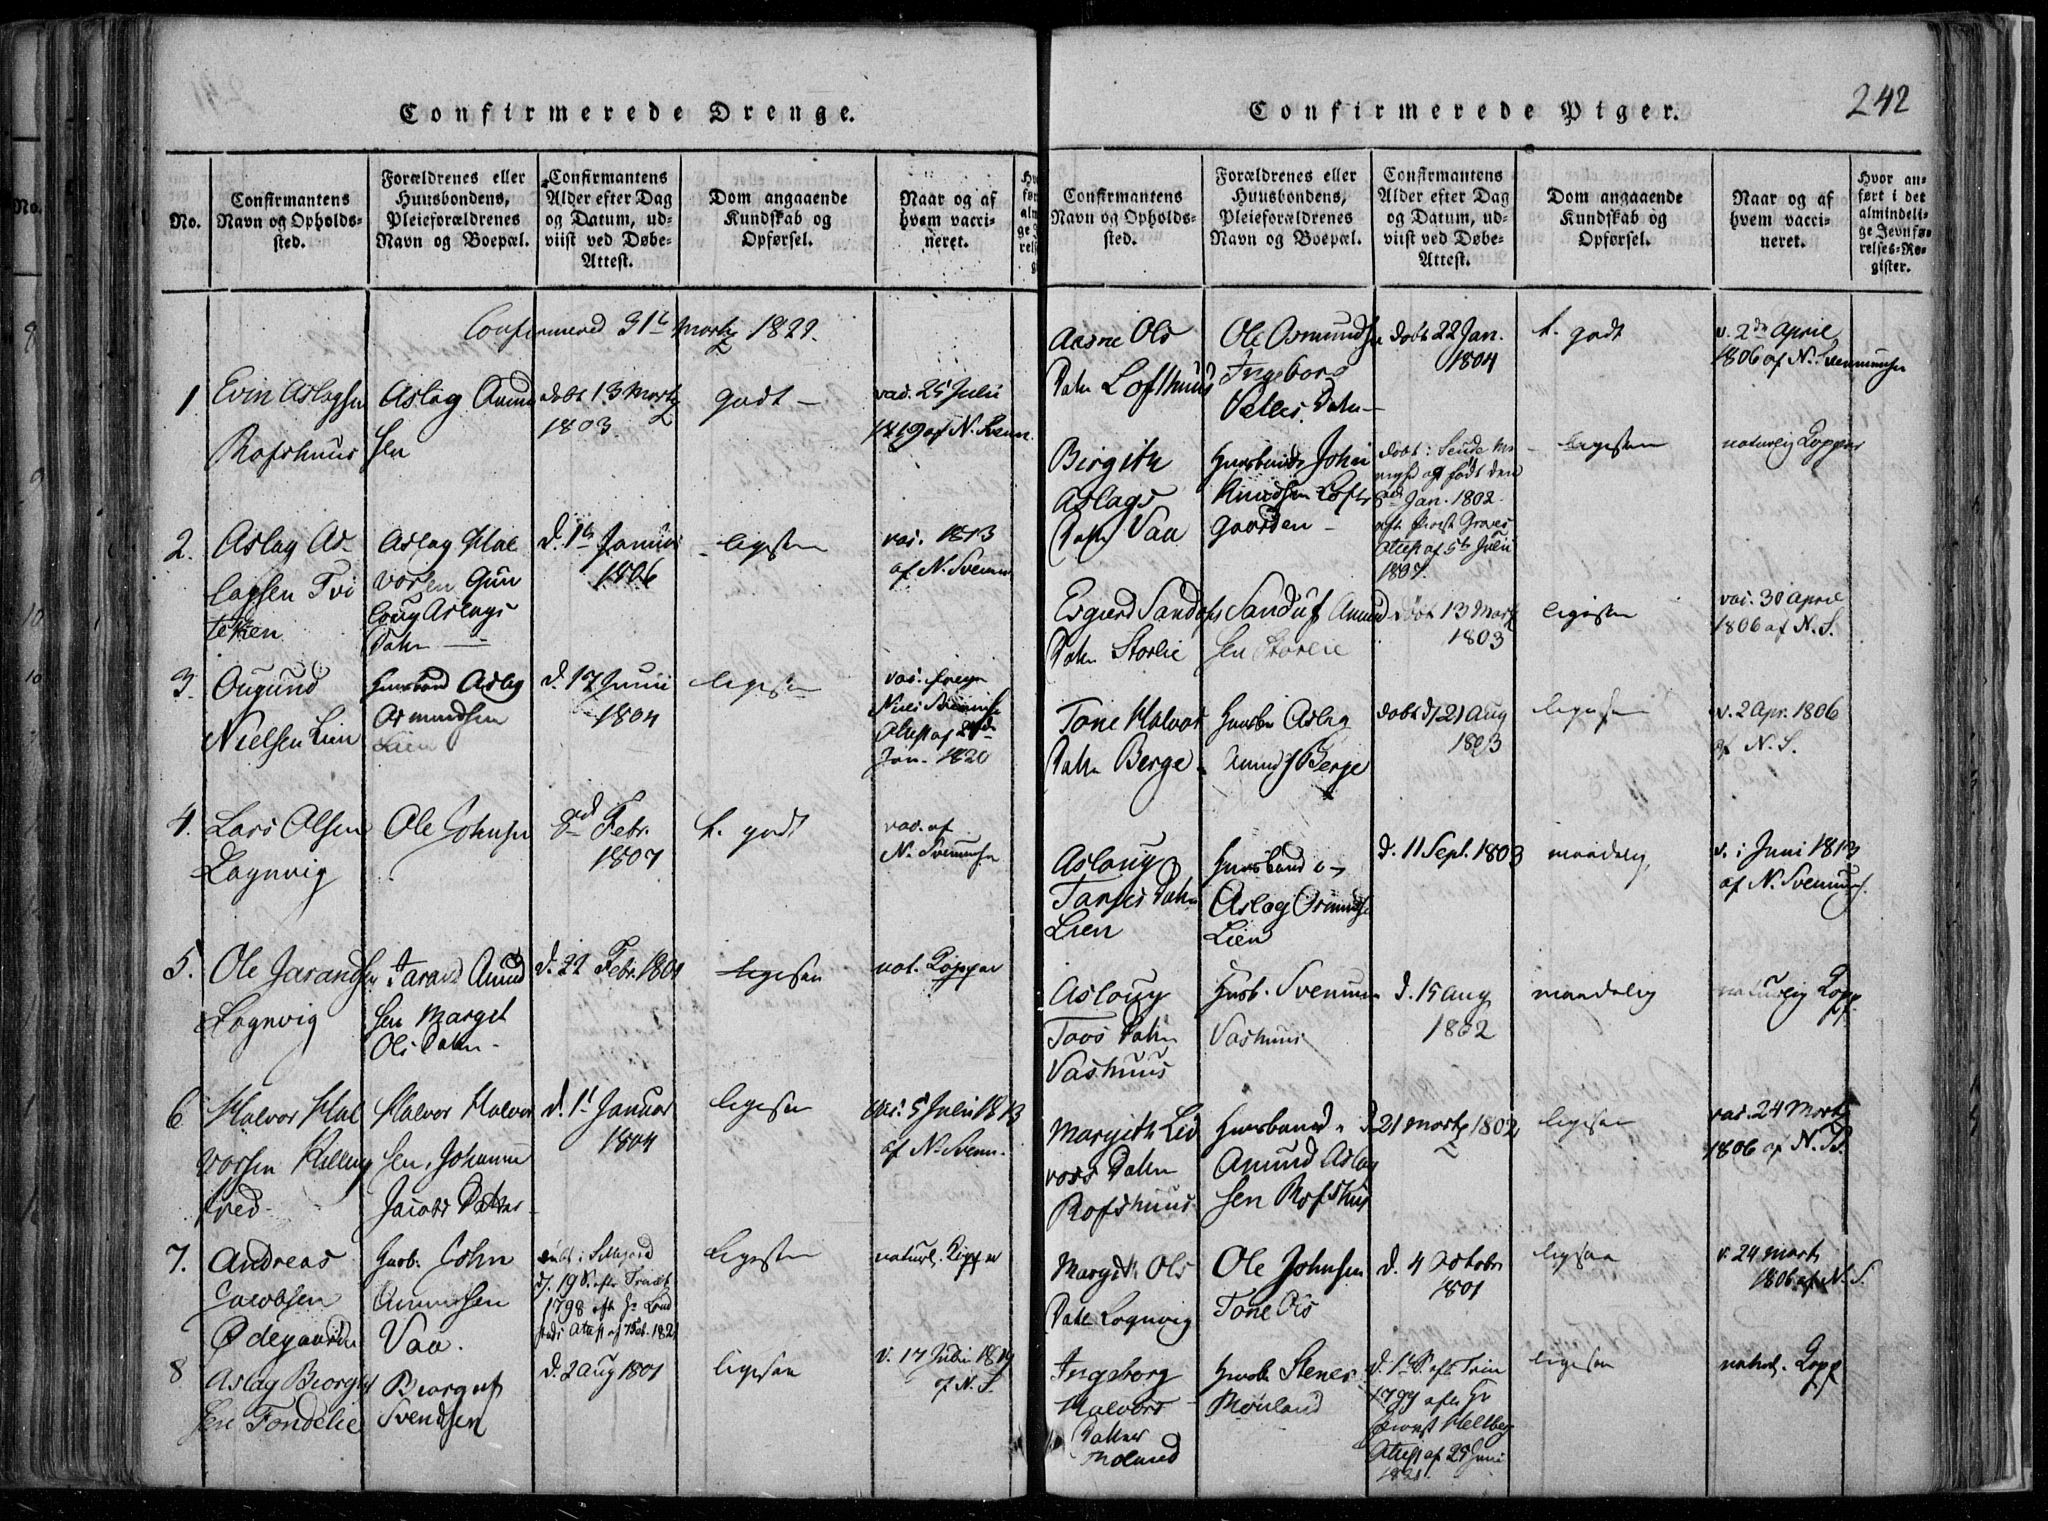 Confirmerede Drenge.
No.
Confirmantens
Navn og Opholds-
sted.
Forældrenes eller
Huusbondens,
Pleieforældrenes
Navn og Boepæl.
Confirmantens
Alder efter Dag
og Datum, ud-
viist ved Døbe-
Attest.
Dom angaaende
Kundskab og
Opførsel.
Naar og af
hvem vacci-
neret.
Confirmered 31t Martz 1822.
1
Evin Aslagsen
Rofshuus
Aslag Amund
sen
døbt 13 Martz
1803.
godt -
vac. 25 Julii
1819 af N. Svenn.
2.
Aslag As-
lagsen Tvi
tekien
Aslag Hal
vorsen Gun
loug Aslags
Datn
d. 1t Januar
1806
ligesaa
vac. 1813
af N. Svenn
3.
Ougund
Nielsen Lien
Huusbond Aslag
Asmundsen
Lien
d. 17 Junii
1804
ligesaa
vac.
Attest af
Jan. 1820
4.
Lars Olsen
Lognvig
Ole Johnsen
Febr.
1807
t. godt
vac. af
N. Svennsen
5.
Ole Jarandsen
Lognvig
Jarand Amund
sen Marget
Ols Datn
d. 22 Febr. 1801
ligesaa
nat. Kopper
6
Halvor Hal
vorsen Kelling
tved
Halvor Halvor
sen, Johanne
Jacobs Datter
d. 1t Januar
1804
ligesaa
vac. 5 Julii 1813
af N. Svenn.
7.
Andreas
Jacobsen
Ødegaarden
Husb. John
Amundsen
Vaa.
døbt i Sillejord
d. 19 S. efter Trinit.
1798
ligesaa
naturl. Kopper
8
Aslag Biorguf
sen Tondelie
Biorguf
Svendsen
d. 2 Aug 1801
ligesaa
v. 17 Julii 1819
af N. S.
Confirmerede Piger.
242
Confirmantens
Navn og Opholds-
sted.
Forældrenes eller
Huusbondens,
Pleieforældrenes
Navn og Boepæl.
Confirmantens
Alder efter Dag
og Datum, ud-
viist ved Døbe-
Attest.
Dom angaaende
Kundskab og
Opførsel.
Naar og af
hvem vacci-
neret.
Hvor an-
ført i det
almindeli-
ge Jevnfø-
relses-Re-
gister.
Aasne Ols
Datn Lofthuus
Ole Osmundsen
Ingeborg
Datn
døbt 22 Jan.
1804
t. godt
v. 2den April
1806 af N. Svennunsen
Birgith
Aslags
Datn Vaa
Huusbonde John
Knudsen Lofts
gaarden
døbt i
og født den
Jan. 1802
Attest af 5t Julii
ligesaa
naturlig Kopper
Sandufs
Datn Storlie
Sanduf Amund
sen Storlie
døbt 13 Martz
1803
ligesaa
vac. 30 April
1806 af N. S.
Tone Halvors
Datn Berge
Huusb. Aslag
Amunds Berge
døbt d. 21 Aug
1803
ligesaa
v. 2 Apr. 1806
af N. S.
Aaslaug
Tarjes Datn
Lien
Huusbond
Aslag Osmundsen
Lien
d. 11 Sept. 1803
maadelig
v. i Juni 1813
af N. Svennuns.
Asloug
Taas Datn
Vashuus
Husb. Svennun
Vashuus
d. 15 Aug
1802
maadelig
naturlig Kopp.
Margith Lid
vors Datn
Rofshuus
Huusbond
Amund Aslag
sen Rofshus
d. 21 Martz 1802
ligesaa
vac. 24 Martz
1806 af N. S.
Margit Ols
Datn Lognvig
Ole Johnsen
Tone Ols
d. 4 Octobr
1801
ligesaa
v. 24 Marts
1806 af N. S.
Ingeborg
Halvors
Datter
Moland
Huusb. Stener
Mørland
d. 1t S. eft. Trin
1799 efter Hr
Provst Hellberg
Attest af 25 Juni
1821.
ligesaa
naturl. Kopp